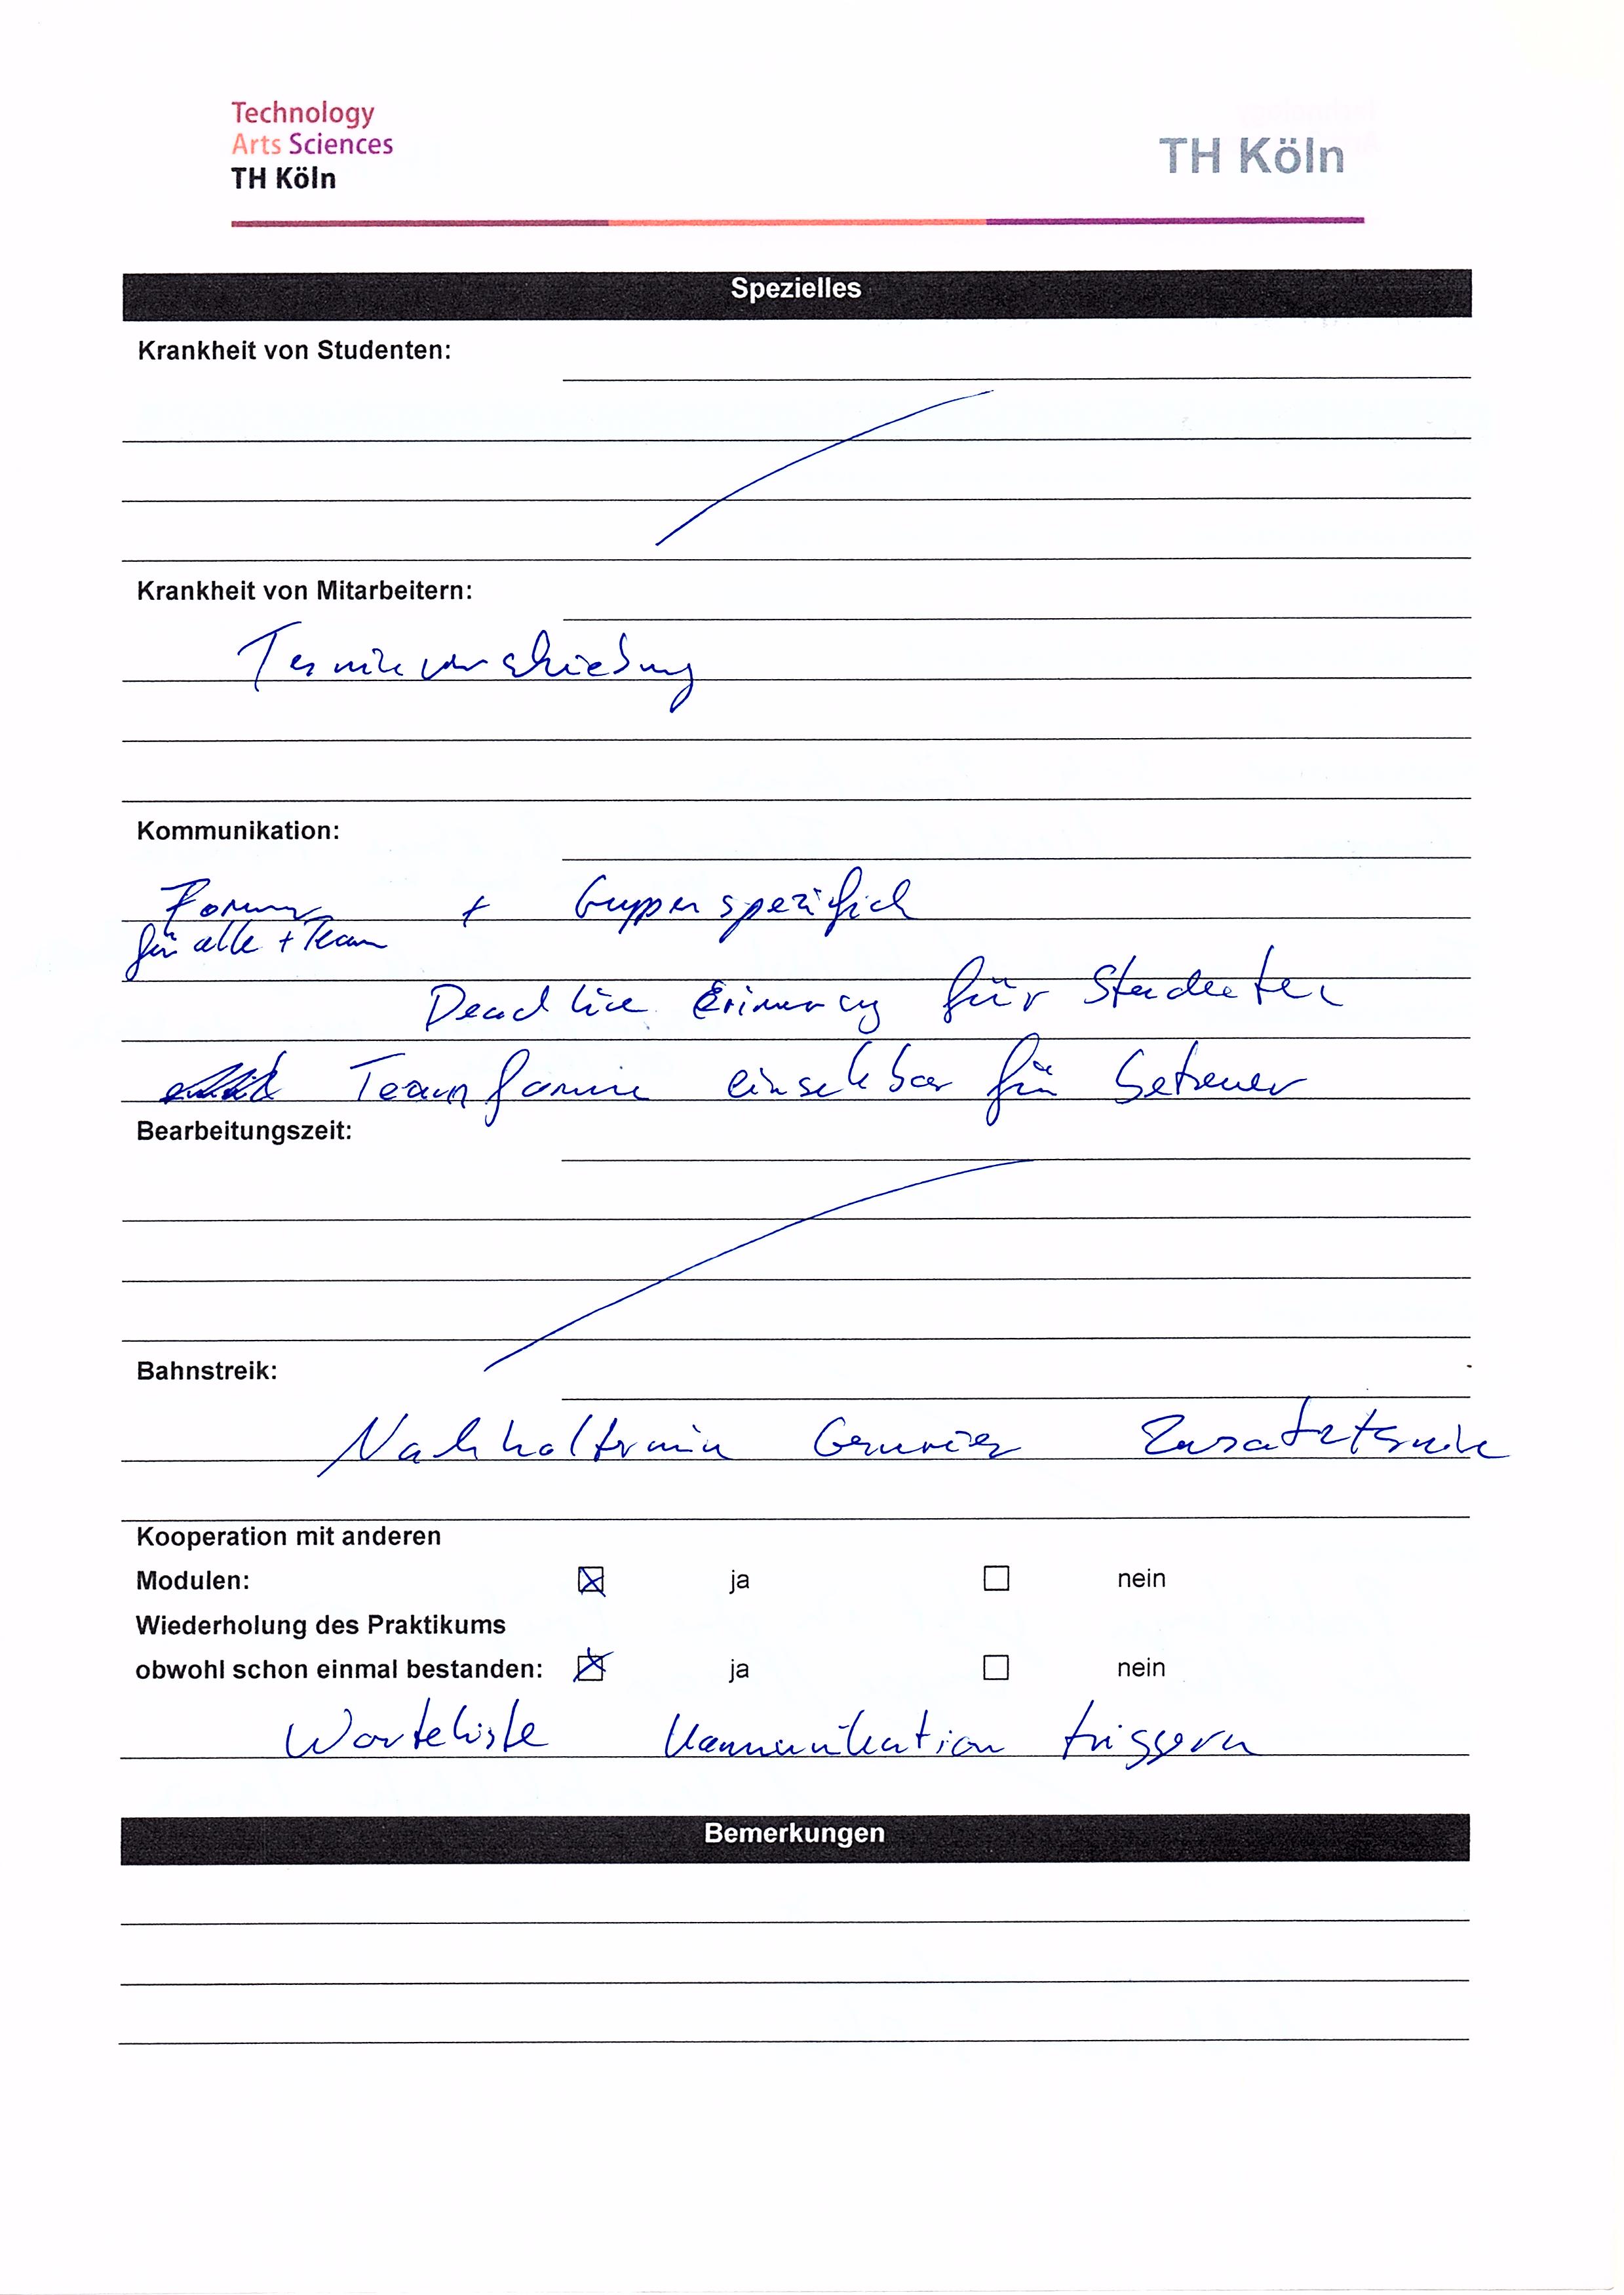 Technology
Arts Sciences
TH Köln
TH Köln
Spezielles
Krankheit von Studenten:
Krankheit von Mitarbeitern:
Terminverschiebung
Kommunikation:
Forum + Gruppenspezifich
für alle + Team
Deadline Erinnerung für Studenten
Teamforum einsehbar für Betreuer
Bearbeitungszeit:
Bahnstreik:
Nachholtermin Zusatztermin
Kooperation mit anderen
Modulen: ja nein
Wiederholung des Praktikums
obwohl schon einmal bestanden: ja nein
Warteliste Kommunikation triggern
Bemerkungen